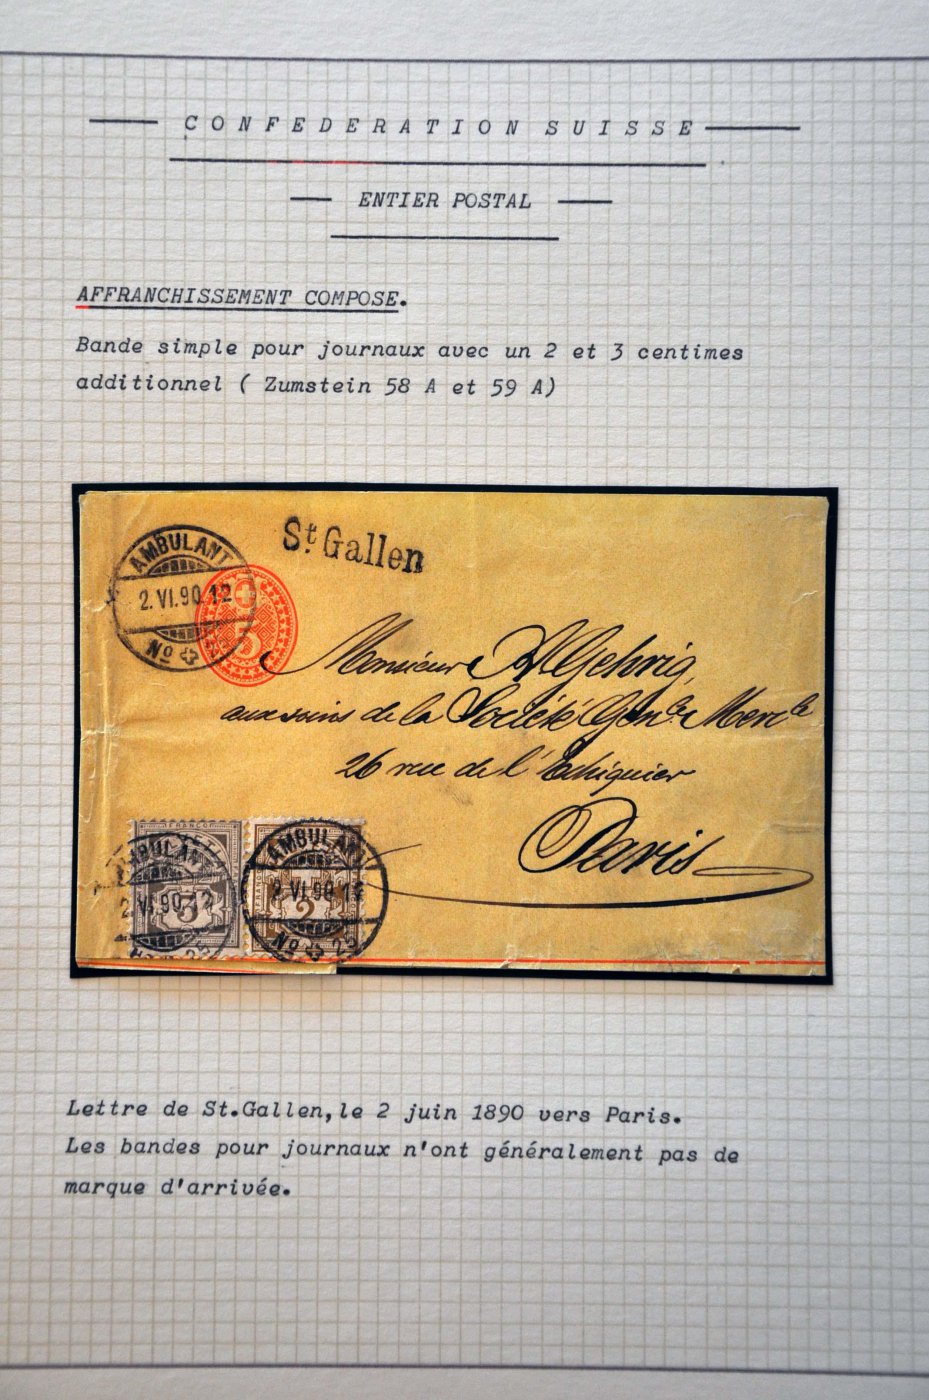 CONFEDERATION SUISSE
ENTIER POSTAL
AFFRANCHISSEMENT COMPOSE.
Bande simple pour journaux avec un 2 et 3 centimes
additionnel ( Zumstein 58 A et 59 A)
St. Gallen
AMBULANT
2.VI.90.12
No
5
Monsieur A Gehrig,
aux soins de la Société Genle Mercle
26 rue de l'Echiquier
Paris
FRANCO
AMBULANT
2.VI.90.12
3
25
AMBULANT
2.VI.90.12
2
No 25
Lettre de St.Gallen,le 2 juin 1890 vers Paris.
Les bandes pour journaux n'ont généralement pas de
marque d'arrivée.